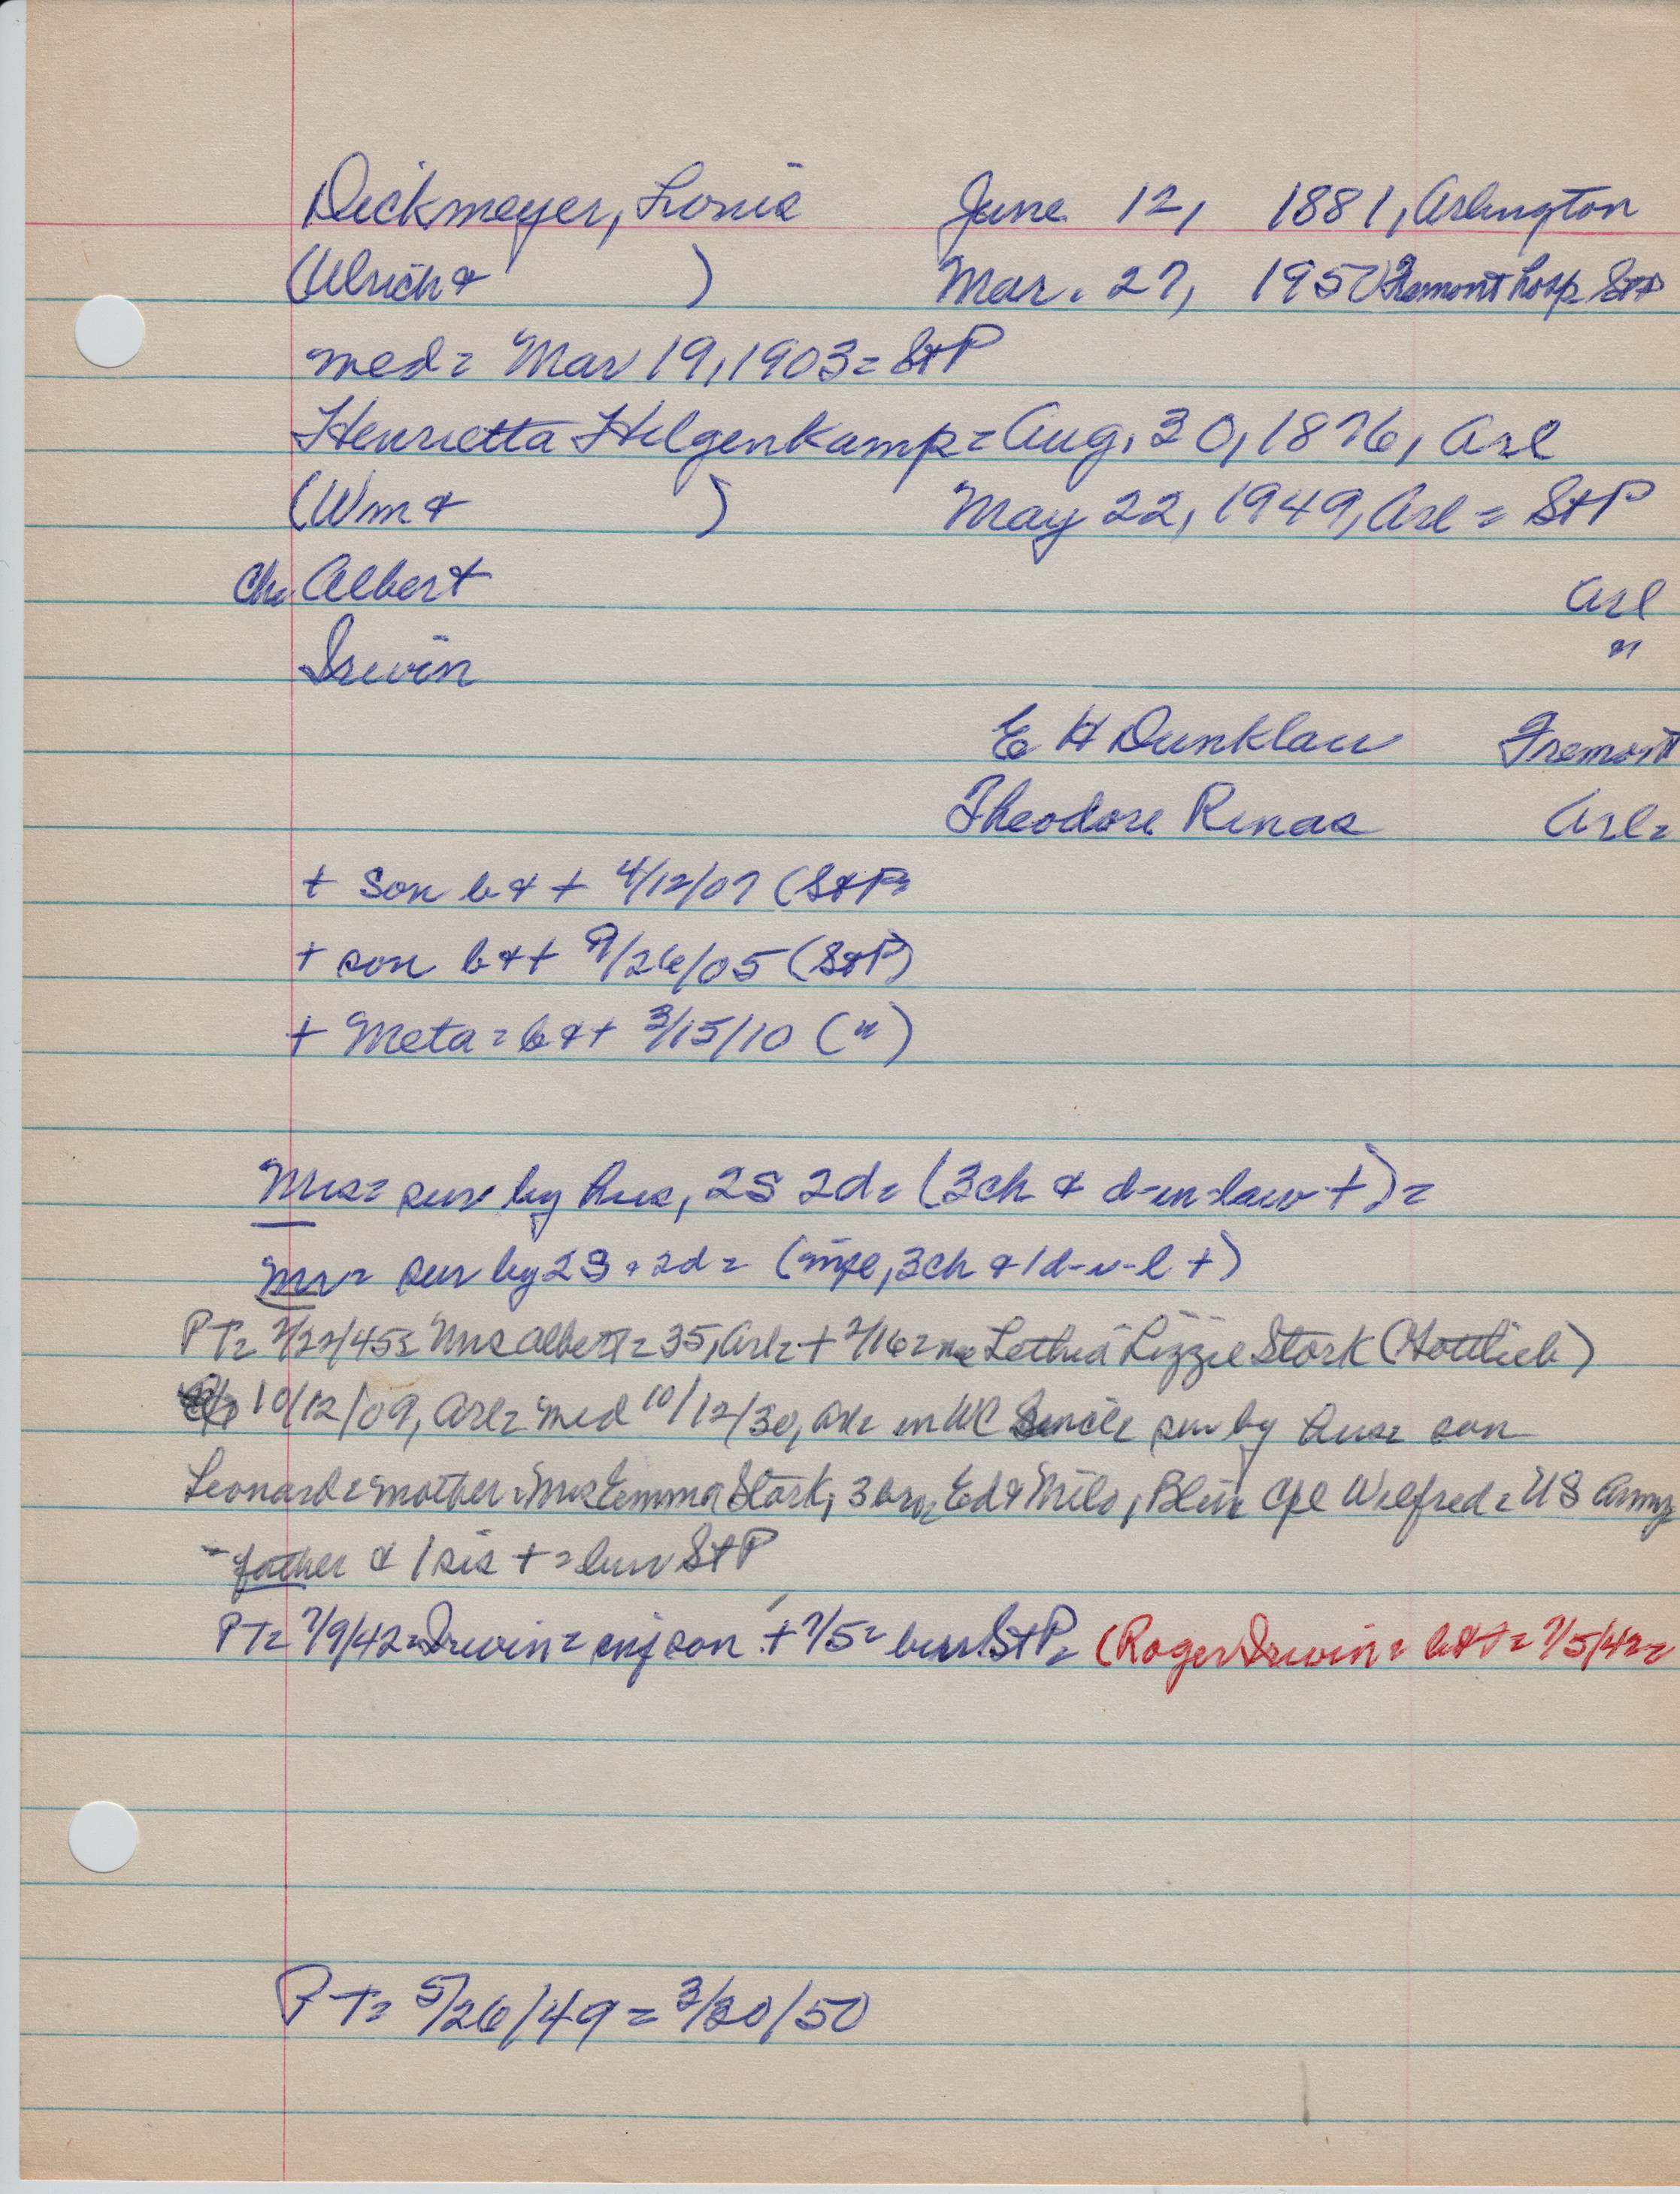 Dickmeyer, Louis June 12, 1881, Arlington
(Ulrich & ) Mar. 27, 1950 Fremont hosp StP
med = Mar 19, 1903 = StP
Henrietta Hilgenkamp = Aug, 30, 1876, Arl
(Wm & ) May 22, 1949, Arl = StP
Ch. Albert Arl
Irwin "
E H Dunklau Fremont
Theodore Renas Arl=
+ Son b & + 4/12/07 (StP=
+ son b & + 9/26/05 (StP)
+ Meta = b & + 3/15/10 (")
Mrs = sur by hus, 2S 2d = (3ch & d-in-law +) =
Mr = sur by 2S & 2d = (wife, 3ch & 1 d-n-l +)
PT= 2/22/45 = Mrs Albert = 35, Arl = + 2/16 = ne Lethia Lizzie Stork (Gottlieb)
10/12/09, Arl = Med 10/12/30, Arl = in WC Since sur by hus = son
Leonard = mother = Mrs Emma Stork, 3 bro = Ed & Milo, Blair Cpl Wilfred = US Army
= father & 1 sis + = bur StP
PT= 7/9/42 = Irwin = inf son + 7/5 = bur StP= (Roger Irwin = b & + = 7/5/42 =
PT= 5/26/49 = 3/30/50